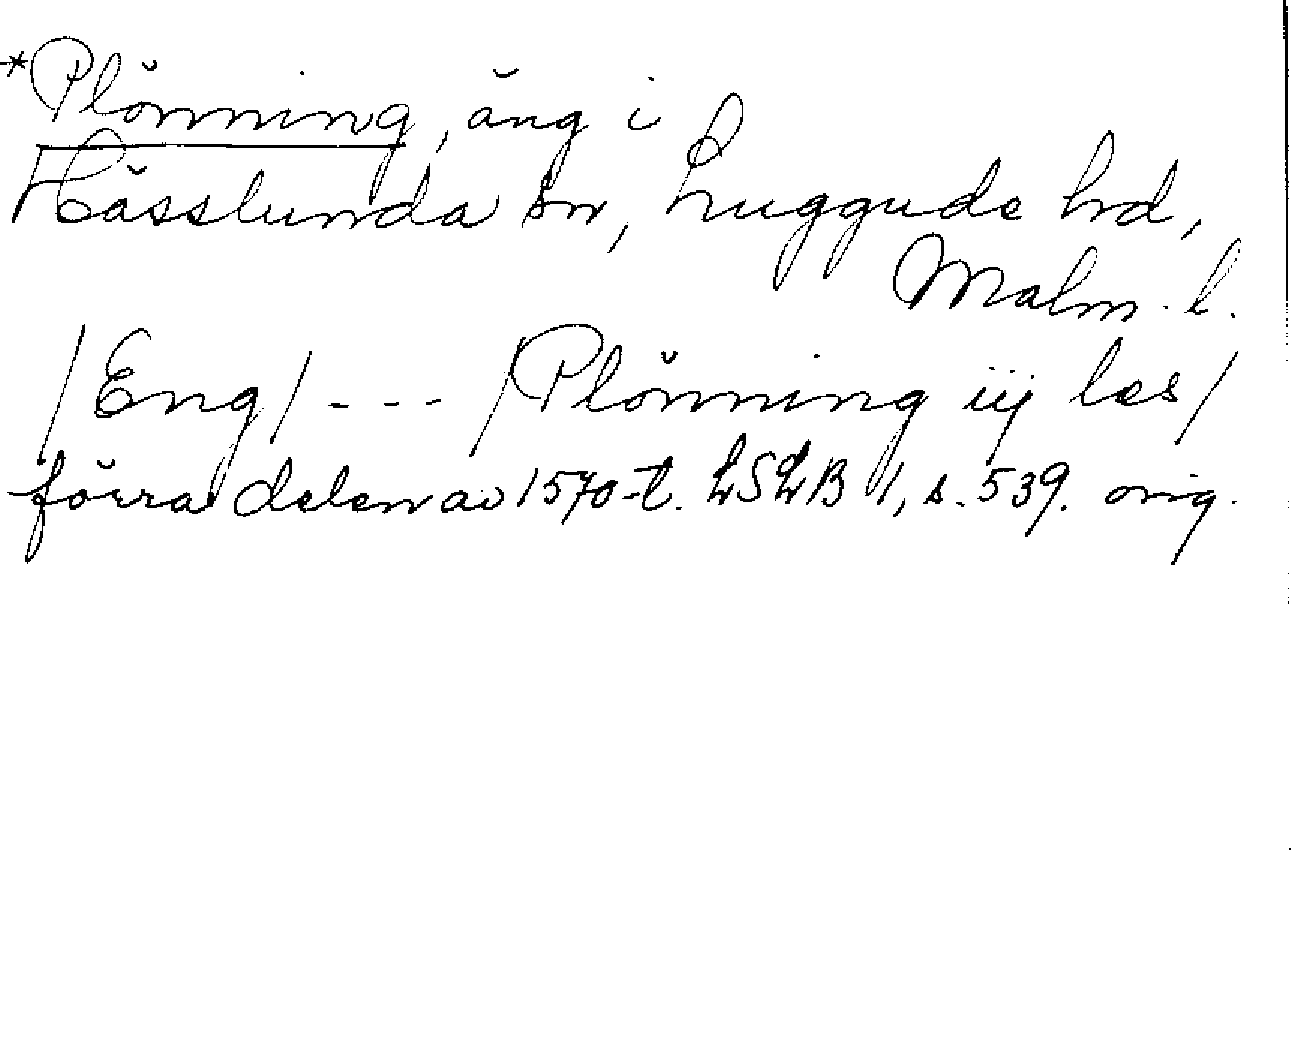 *Plönning, äng i
Hässlunda sn, Luggude hd,
Malm. l.
/Eng/ - - - /Plönning iij les/
förra delen av 1570-t. LSLB 1, s. 539. orig.